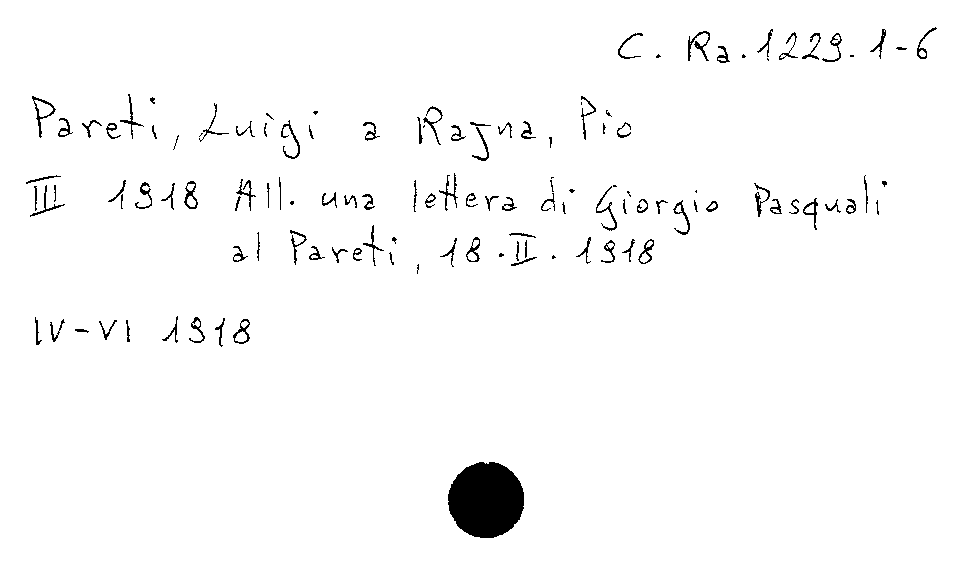 C. Ra. 1229. 1-6
Pareti, Luigi a Rajna, Pio
III 1918 All. una lettera di Giorgio Pasquali
al Pareti, 18.II.1918
IV-VI 1918